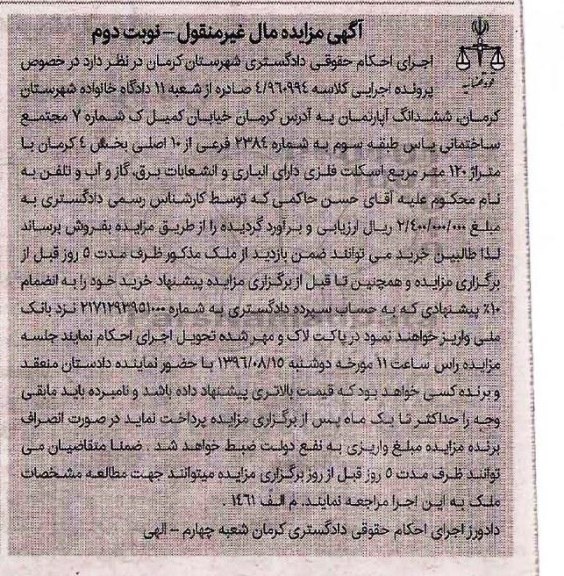 آگهی مزایده مال غیرمنقول – نوبت دوم
اجرای احکام حقوقی دادگستری شهرستان کرمان در نظر دارد در خصوص
پرونده اجرایی کلاسه ۴/۹۶۰۹۹۴ صادره از شعبه ۱۱ دادگاه خانواده شهرستان
کرمان، ششدانگ آپارتمان به آدرس کرمان خیابان کمیل ک شماره ۷ مجتمع
ساختمانی یاس طبقه سوم به شماره ۲۳۸۴ فرعی از ۱۰ اصلی بخش ۴ کرمان با
متراژ ۱۲۰ متر مربع اسکلت فلزی دارای انباری و انشعابات برق، گاز و آب و تلفن به
نام محکوم علیه آقای حسن حاکمی که توسط کارشناس رسمی دادگستری به
مبلغ ۲/۴۰۰/۰۰۰/۰۰۰ ریال ارزیابی و برآورد گردیده را از طریق مزایده بفروش برساند
لذا طالبین خرید می توانند ضمن بازدید از ملک مذکور ظرف مدت ۵ روز قبل از
برگزاری مزایده و همچنین تا قبل از برگزاری مزایده پیشنهاد خرید خود را به انضمام
۱۰٪ پیشنهادی که به حساب سپرده دادگستری به شماره ۲۱۷۱۲۹۳۹۵۱۰۰۰ نزد بانک
ملی واریز خواهند نمود در پاکت لاک و مهر شده تحویل اجرای احکام نمایند جلسه
مزایده راس ساعت ۱۱ مورخه دوشنبه ۱۳۹۶/۰۸/۱۵ با حضور نماینده دادستان منعقد
و برنده کسی خواهد بود که قیمت بالاتری پیشنهاد داده باشد و نامبرده باید مابقی
وجه را حداکثر تا یک ماه پس از برگزاری مزایده پرداخت نماید در صورت انصراف
برنده مزایده مبلغ واریزی به نفع دولت ضبط خواهد شد . ضمنا متقاضیان می
توانند ظرف مدت ۵ روز قبل از روز برگزاری مزایده میتوانند جهت مطالعه مشخصات
ملک به این اجرا مراجعه نمایند. م الف ۱۴۶۱ .
دادورز اجرای احکام حقوقی دادگستری کرمان شعبه چهارم – الهی